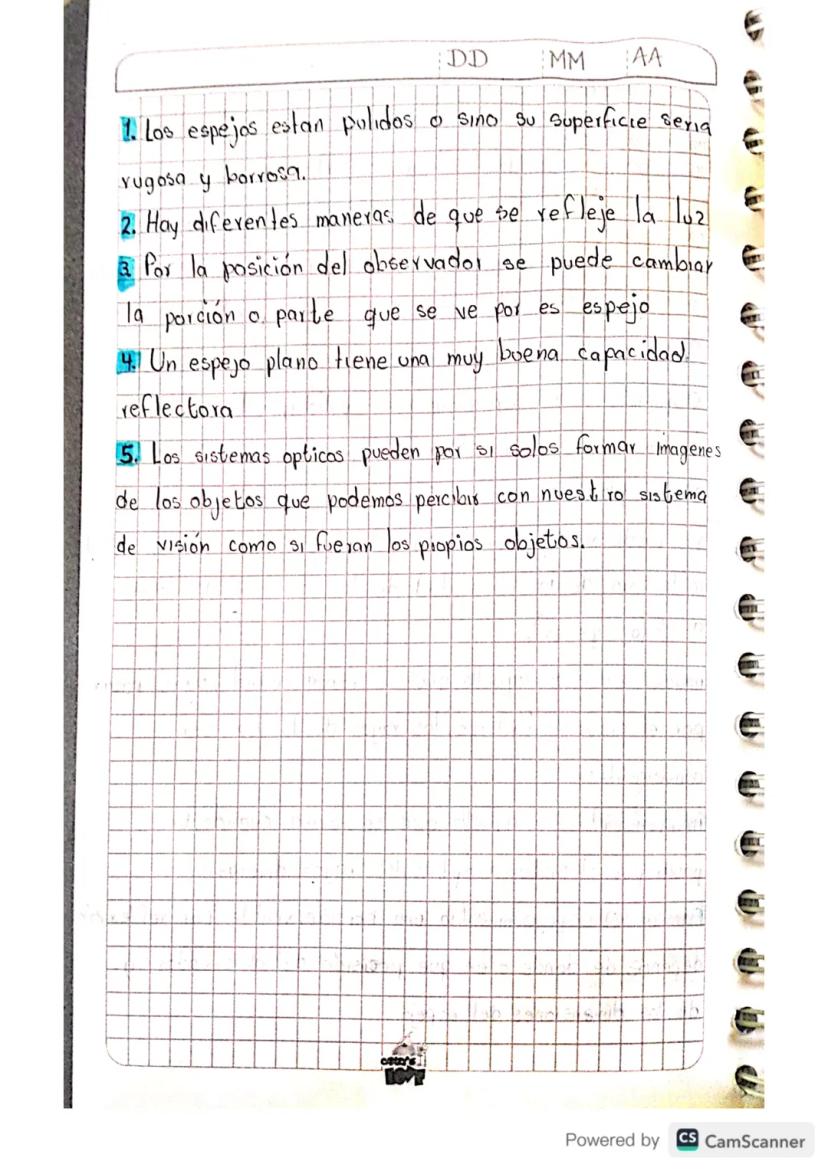 DD MM AA
1. Los espejos estan pulidos o sino su superficie seria
rugosa y borrosa.
2. Hay diferentes maneras de que se refleje la luz
3. Por la posición del observador se puede cambiar
la porción o parte que se ve por es espejo
4. Un espejo plano tiene una muy buena capacidad
reflectora
5. Los sistemas opticos pueden por si solos formar imagenes
de los objetos que podemos percibir con nuestro sistema
de visión como si fueran los propios objetos.
LOVE
Powered by CS CamScanner